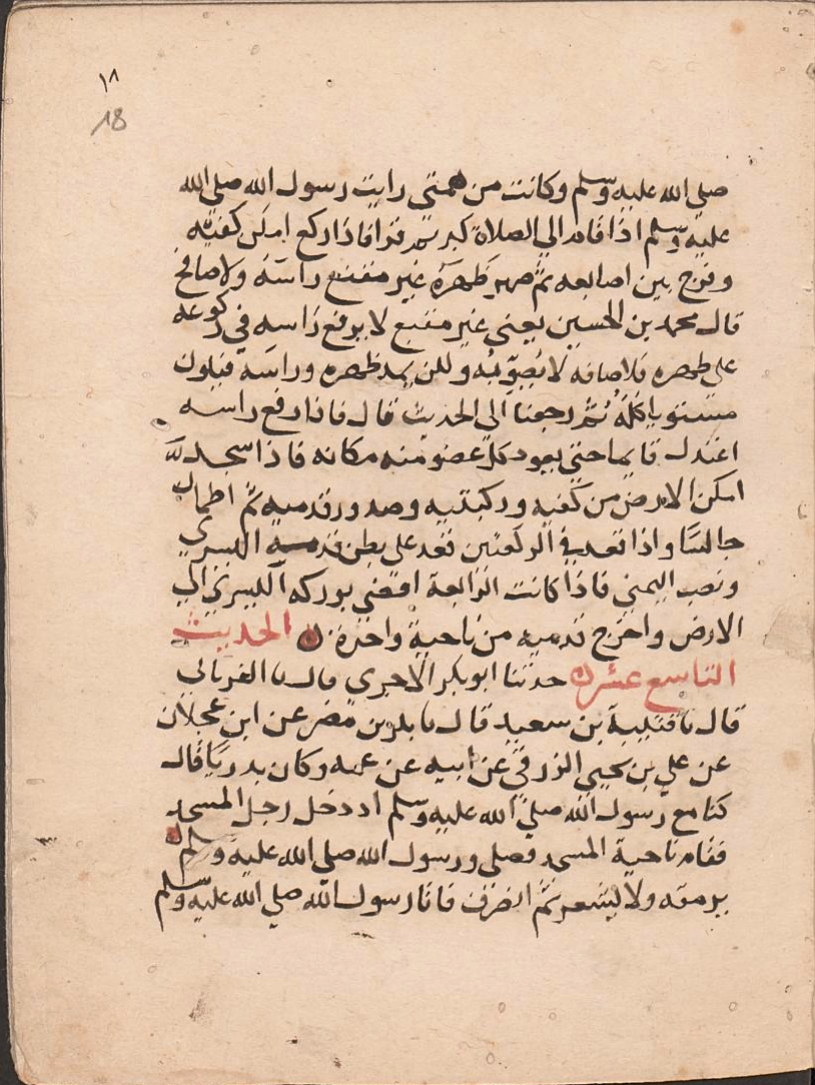 ١٨
18
صلي الله عليه وسلم وكانت من همتي رايت رسول الله صلي الله
عليه وسلم اذا قام الي الصلاة كبر ثم قرا فاذا ركع امكن كفيه
وفرج بين اصابعه ثم هصر ظهره غير مقنع راسه ولا صافح
قال محمد بن الحسين يعني غير مقنع لا يرفع راسه في ركوعه
علي ظهره ولا صافه لا يصوبه ولكن يمد ظهره وراسه فيكون
مستويا كله ثم رجعنا الي الحديث قال فاذا رفع راسه
اعتدل قايما حتي يعود كل عضو منه مكانه فاذا سجد
امكن الارض من كفيه وركبتيه وصدور قدميه ثم اطمان
جالسا واذا قعد في الركعتين قعد علي بطن قدمه اليسري
ونصب اليمني فاذا كانت الرابعة افضي بوركه اليسري الي
الارض واخرج قدميه من ناحية واحدة ن الحديث
التاسع عشر ن حدثنا ابو بكر الاجري قال نا الفريابي
قال نا قتيبة بن سعيد قال نا بكر بن مضر عن ابن عجلان
عن علي بن يحيي الزرقي عن ابيه عن عمه وكان بدريا قال
كنا مع رسول الله صلي الله عليه وسلم اذ دخل رجل المسجد
فقام ناحية المسجد فصلي ورسول الله صلي الله عليه وسلم
يرمقه ولا يشعر ثم انصرف فاتا رسول الله صلي الله عليه وسلم